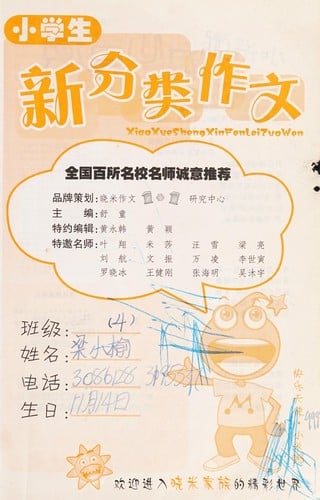 小学生
新分类作文
XiaoXueShengXinFenLeiZuoWen
全国百所名校名师诚意推荐
品牌策划：晓米作文 研究中心
主 编：舒童
特约编辑：黄永韩 黄颖
特邀名师：叶翔 米莎 汪雪 梁亮
刘航 文振 万凌 李世寅
罗晓冰 王健刚 张海明 吴沐宇
班级： (4)
姓名：梁小楠
电话：3086128
生日：11月14日
M
欢迎进入晓米家族的精彩世界